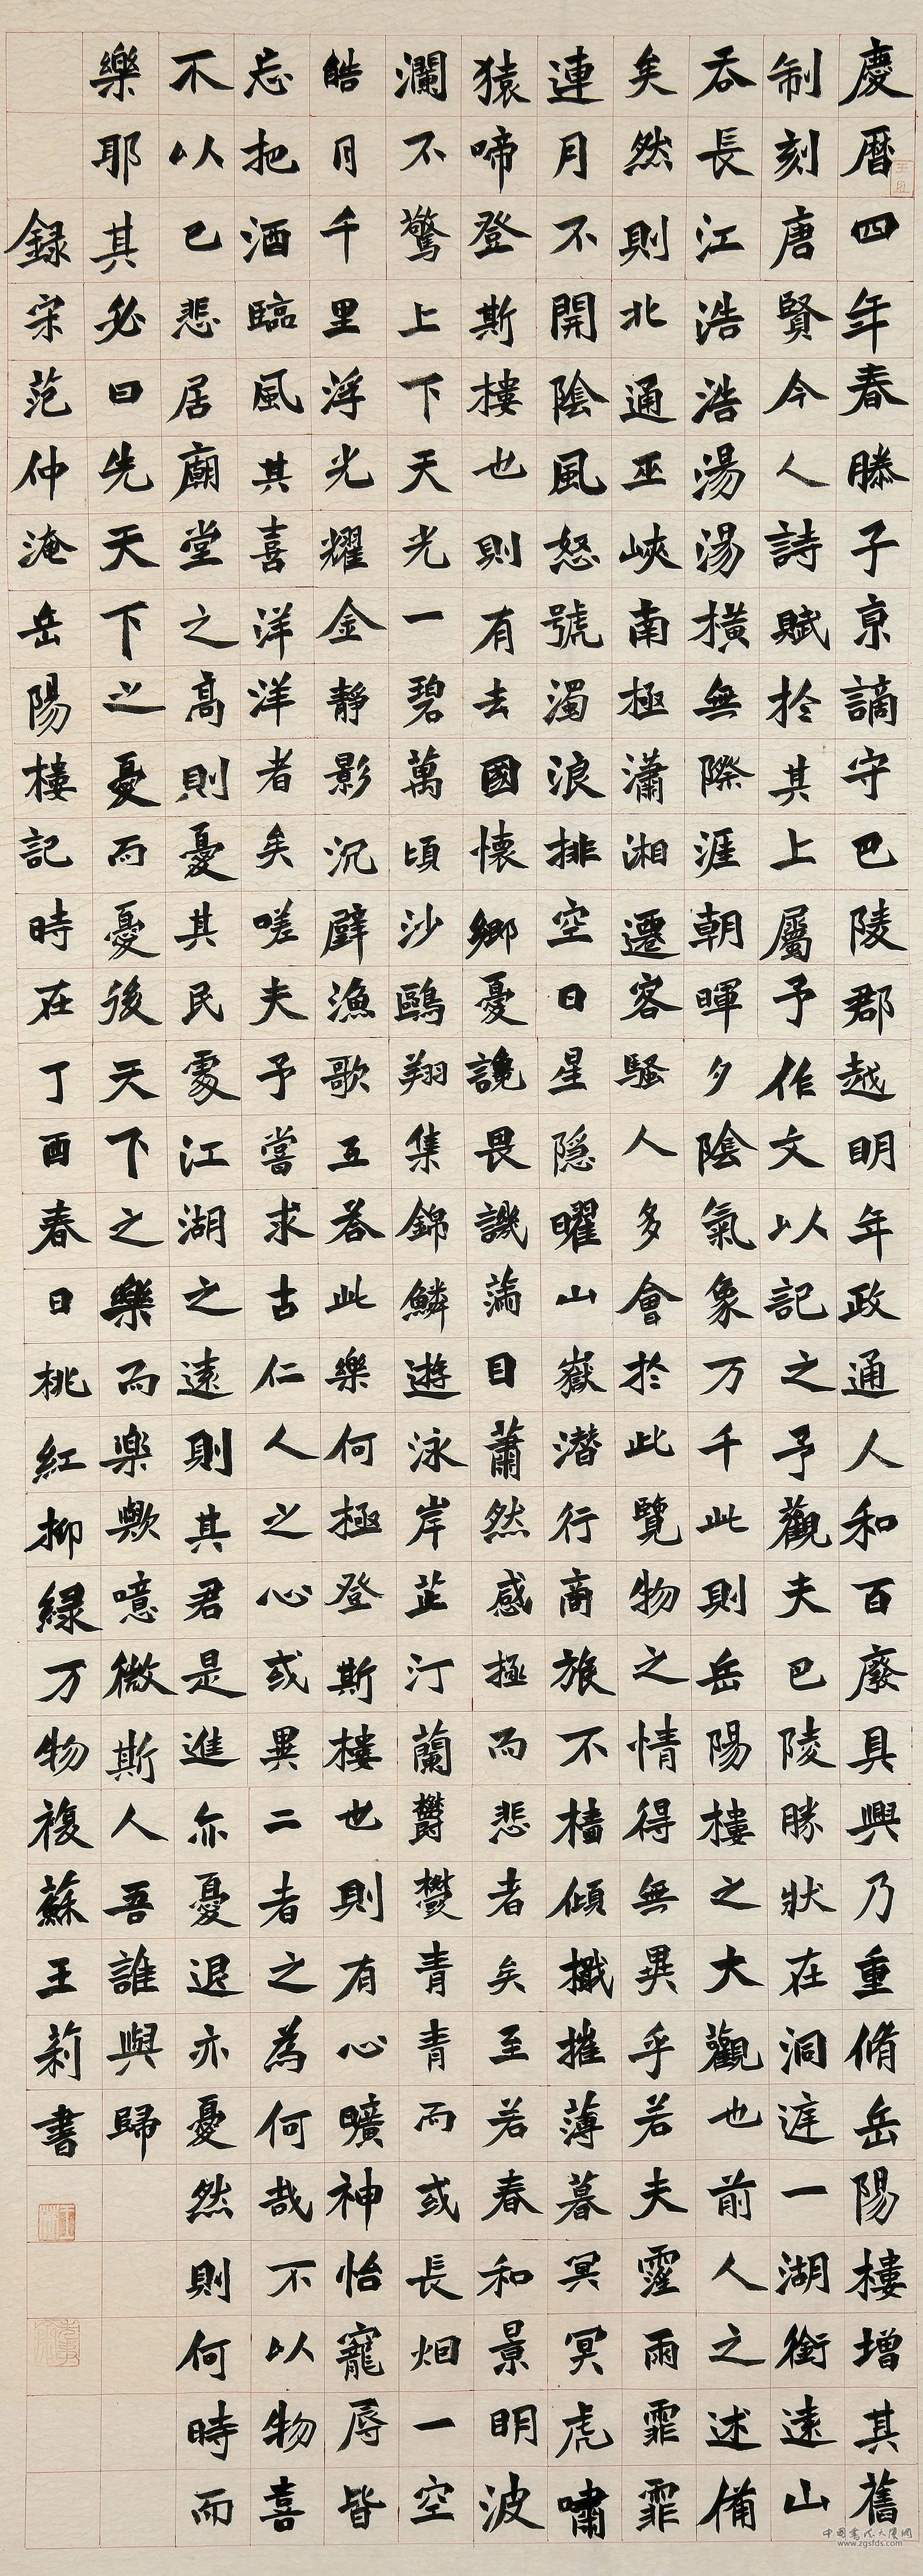 慶曆四年春滕子京謫守巴陵郡越明年政通人和百廢具興乃重脩岳陽樓增其舊
制刻唐賢今人詩賦於其上屬予作文以記之予觀夫巴陵勝狀在洞庭一湖銜遠山
吞長江浩浩湯湯橫無際涯朝暉夕陰氣象万千此則岳陽樓之大觀也前人之述備
矣然則北通巫峽南極瀟湘遷客騷人多會於此覽物之情得無異乎若夫霪雨霏霏
連月不開陰風怒號濁浪排空日星隱曜山嶽潛行商旅不檣傾檝摧薄暮冥冥虎嘯
猿啼登斯樓也則有去國懷鄉憂讒畏譏滿目蕭然感極而悲者矣至若春和景明波
瀾不驚上下天光一碧萬頃沙鷗翔集錦鱗遊泳岸芷汀蘭欝欝青青而或長烟一空
皓月千里浮光耀金靜影沉璧漁歌互荅此樂何極登斯樓也則有心曠神怡寵辱皆
忘把酒臨風其喜洋洋者矣嗟夫予嘗求古仁人之心或異二者之為何哉不以物喜
不以己悲居廟堂之高則憂其民處江湖之遠則其君是進亦憂退亦憂然則何時而
樂耶其必曰先天下之憂而憂後天下之樂而樂歟噫微斯人吾誰與歸
録宋范仲淹岳陽樓記時在丁酉春日桃紅柳緑万物複蘇王莉書
中国书法大厦网
www.zgsfds.com